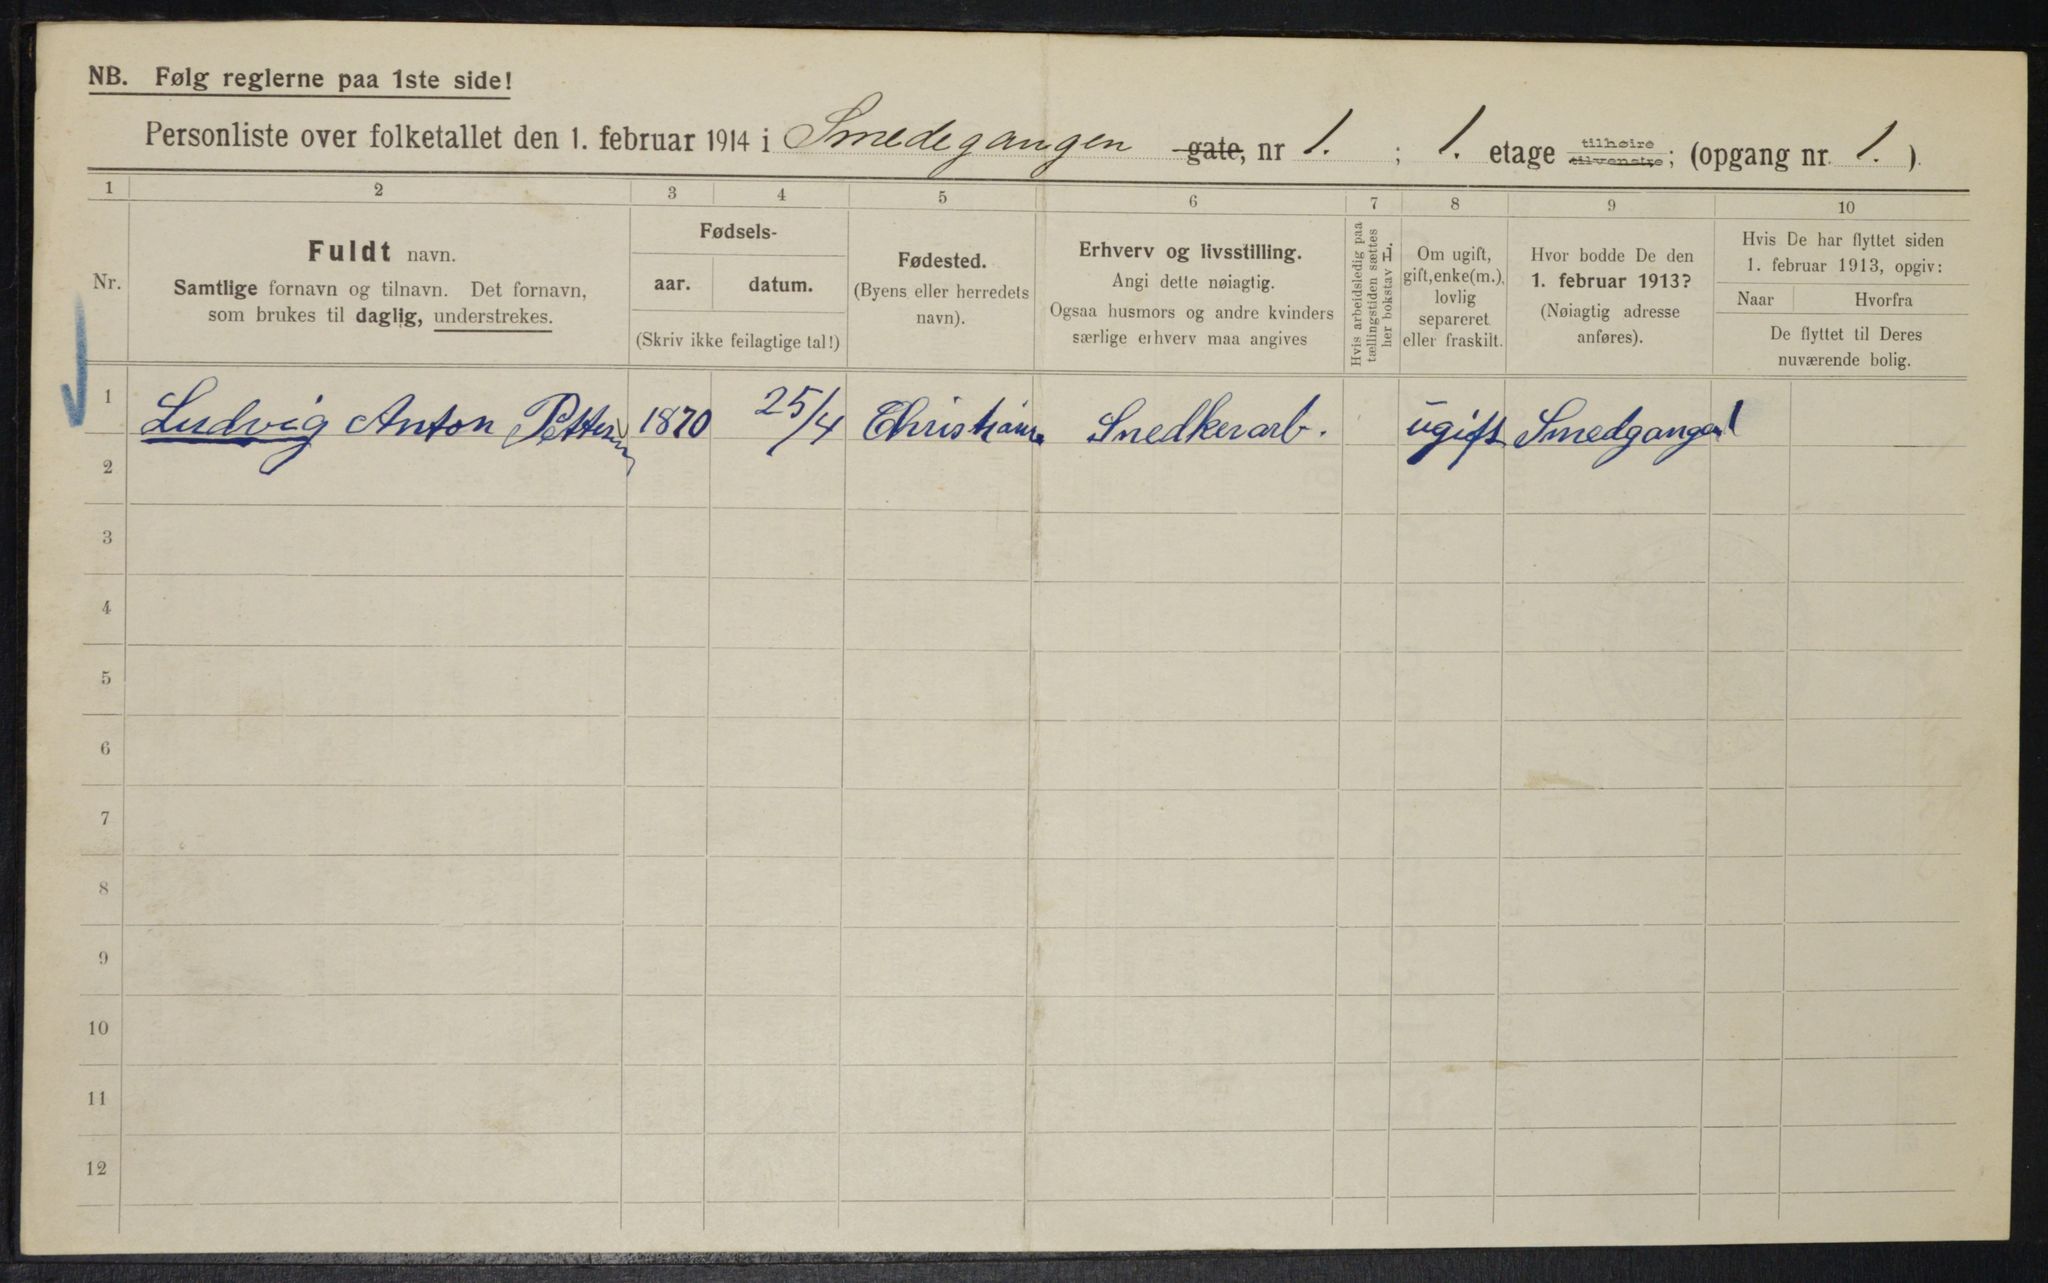 NB. Følg reglerne paa 1ste side!
Personliste over folketallet den 1. februar 1914 i Smedegangen gate, nr 1. ; 1. etage tilhøire tilvenstre; (opgang nr. 1.).
1 2 3 4 5 6 7 8 9 10
Nr.
Fuldt navn.
Samtlige fornavn og tilnavn. Det fornavn,
som brukes til daglig, understrekes.
Fødsels-
aar. datum.
(Skriv ikke feilagtige tal!)
Fødested.
(Byens eller herredets
navn).
Erhverv og livsstilling.
Angi dette nøiagtig.
Ogsaa husmors og andre kvinders
særlige erhverv maa angives
Hvis arbeidsledig paa
tællingstiden sættes
her bokstav L.
Om ugift,
gift, enke(m.),
lovlig
separeret
eller fraskilt.
Hvor bodde De den
1. februar 1913?
(Nøiagtig adresse
anføres).
Hvis De har flyttet siden
1. februar 1913, opgiv:
Naar Hvorfra
De flyttet til Deres
nuværende bolig.
1 Ludvig Anton 1870 25/4 Christiania Snedkerarb. ugift Smedgangen 1
2
3
4
5
6
7
8
9
10
11
12